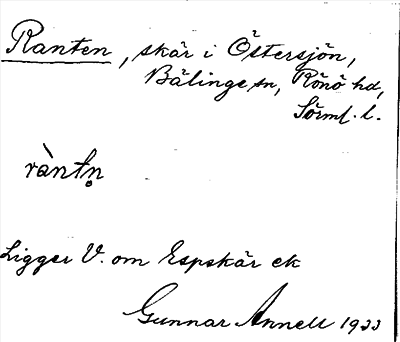 Ranten, skär i Östersjön,
Bälinge sn, Rönö hd,
Sörml. l.
ràntn̥
Ligger V. om Espskär ek
Gunnar Annell 1933